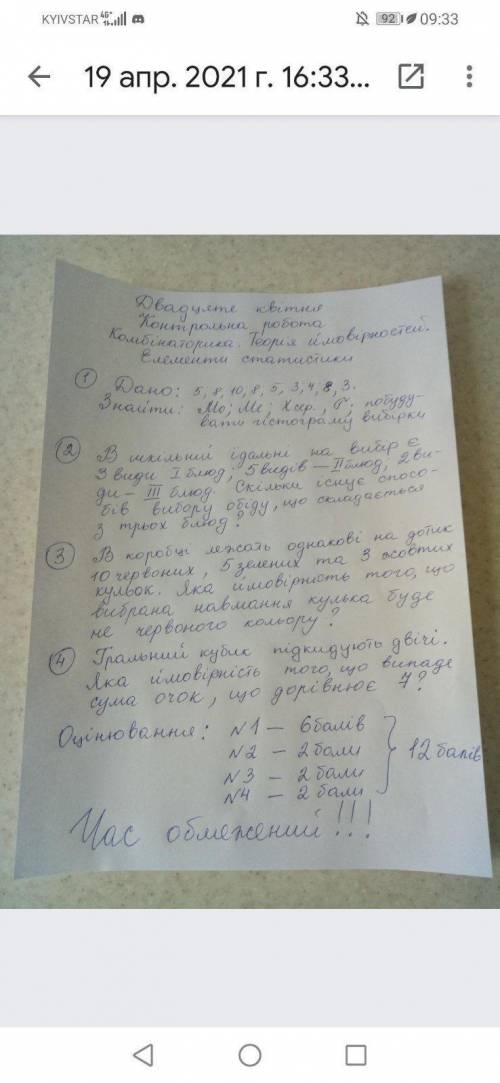 KYIVSTAR 4G+ 92 09:33
19 апр. 2021 г. 16:33...
Двадцяте квітня
Контрольна робота
Комбінаторика. Теорія ймовірностей.
Елементи статистики
1 Дано: 5, 8, 10, 8, 5, 3, 4, 8, 3.
Знайти: Мо; Ме; Хсер., побуду-
вати гістограму вибірки
2 В шкільній їдальні на вибір є
3 види І блюд, 5 видів – ІІ блюд, 2 ви-
ди – ІІІ блюд. Скільки існує спосо-
бів вибору обіду, що складається
з трьох блюд?
3 В коробці лежать однакові на дотик
10 червоних, 5 зелених та 3 жовтих
кульок. Яка ймовірність того, що
вибрана навмання кулька буде
не червоного кольору?
4 Гральний кубик підкидують двічі.
Яка ймовірність того, що випаде
сума очок, що дорівнює 7?
Оцінювання: №1 – 6 балів
№2 – 2 бали
12 балів
№3 – 2 бали
№4 – 2 бали
Час обмежений!!!